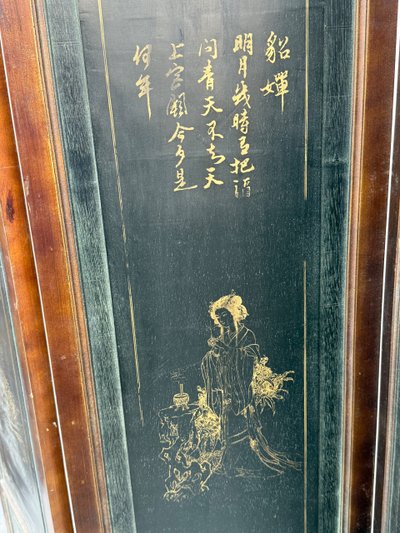 貂嬋
明月幾時有把酒
問青天不知天
上宮闕今夕是
何年